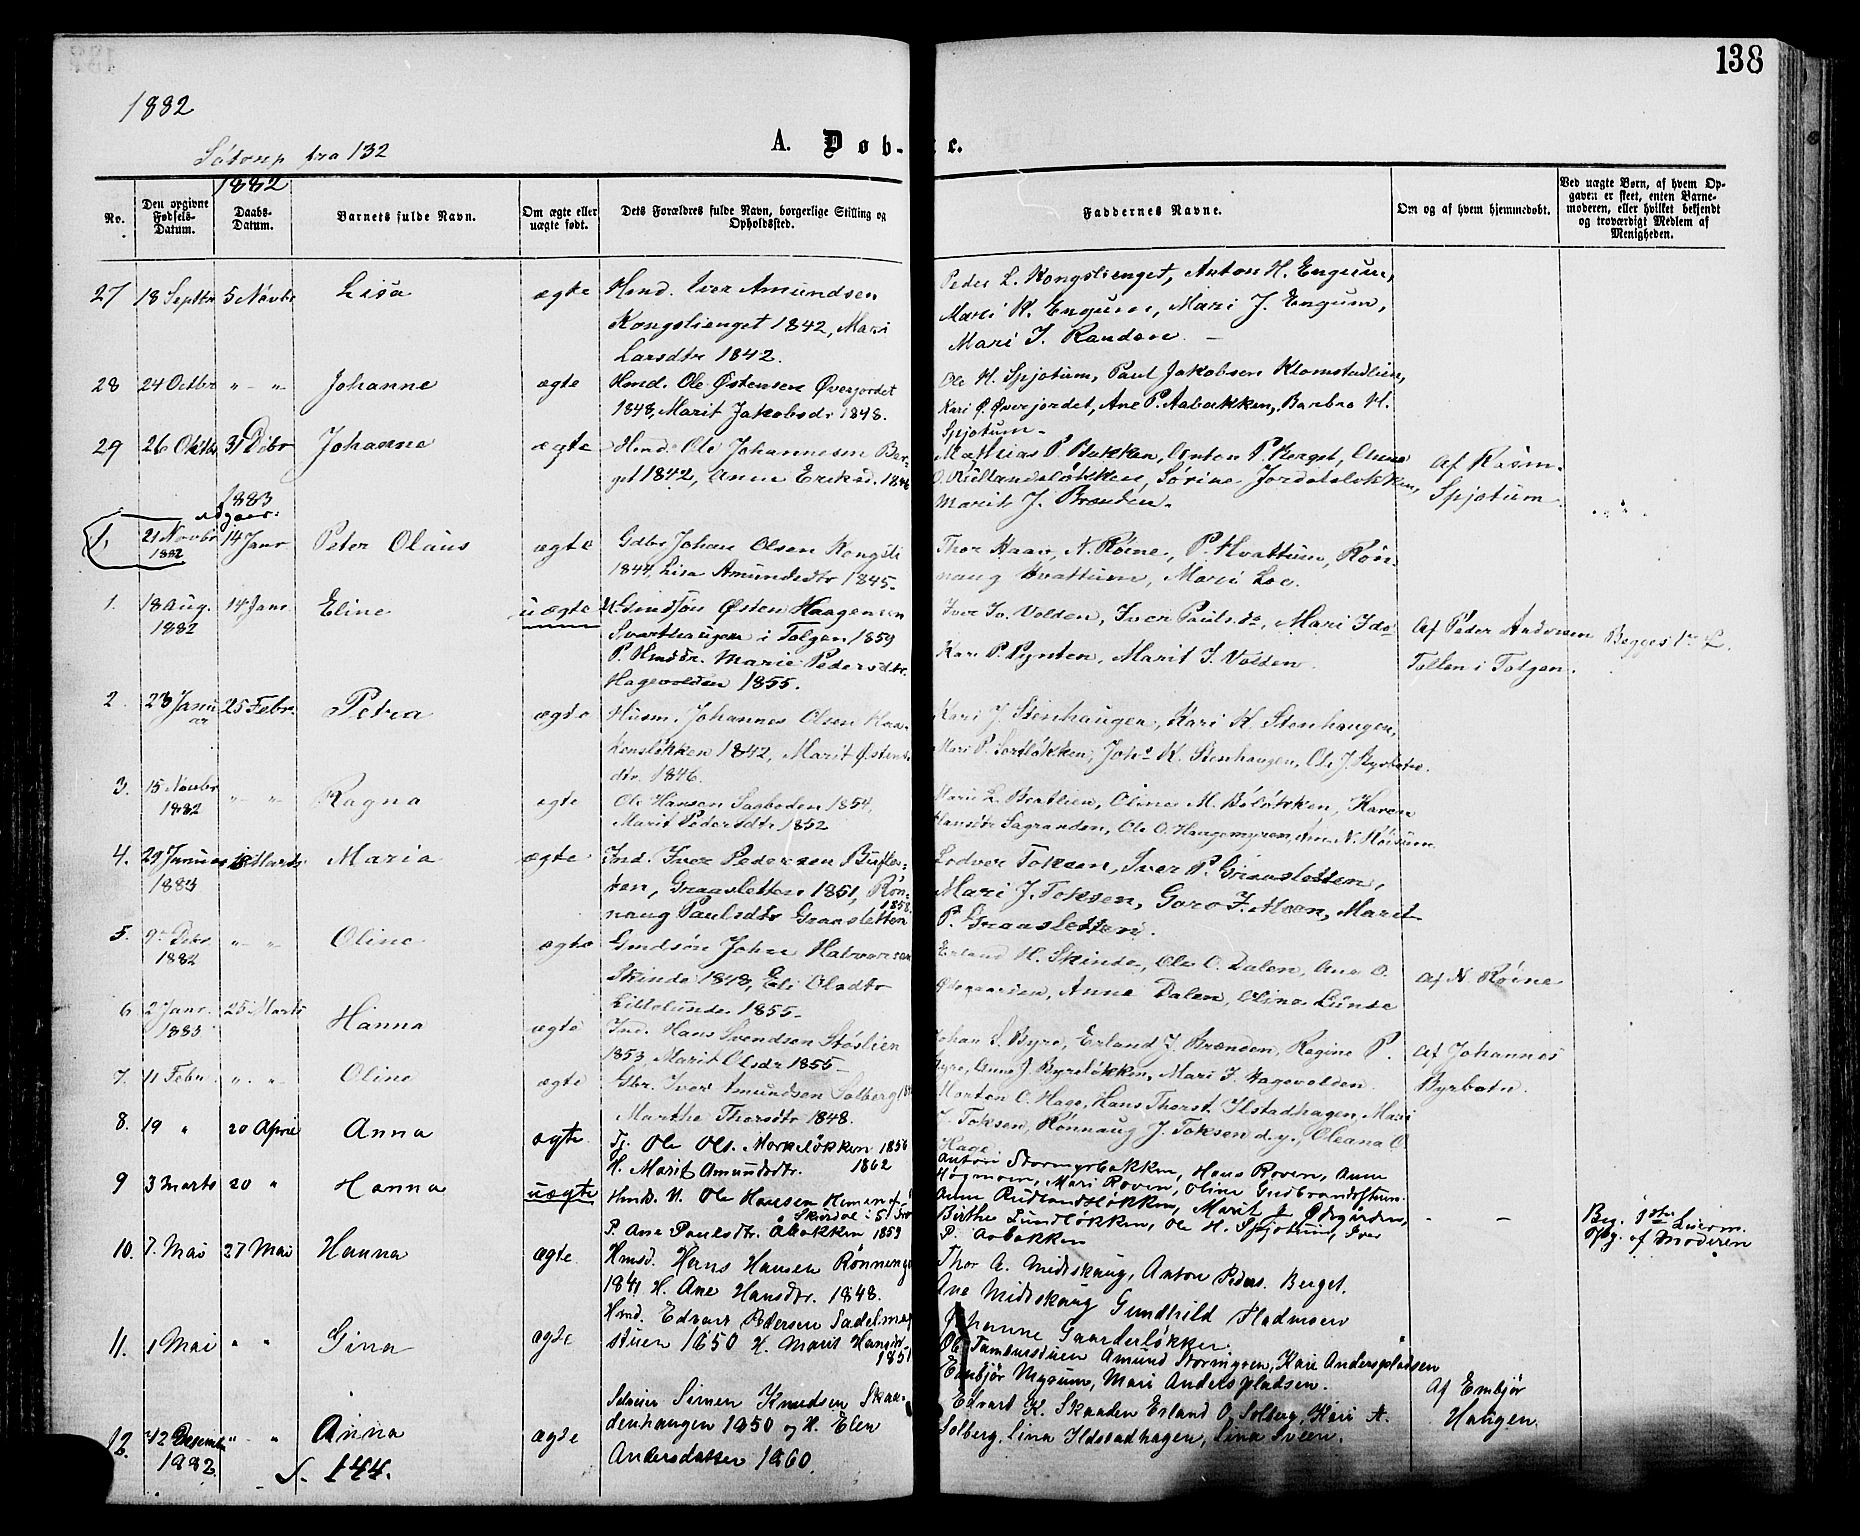 138
1882
Södorp fra 132
A. Døb- e.
1882
No.
Den opgivne Fødsels-Datum.
Daabs-Datum.
Barnets fulde Navn.
Om ægte eller uægte født.
Dets Forældres fulde Navn, borgerlige Stilling og Opholdssted.
Faddernes Navne.
Om og af hvem hjemmedøbt.
Ved uægte Børn, af hvem Opgaven er skeet, enten Barnemoderen, eller hvilket bekjendt og troværdigt Medlem af Menigheden.
27 18 Septbr 5 Novbr Lisa ægte Hmd. Iver Amundsen
Kongslienget 1842, Mari
Larsdtr 1842.
Peder L. Kongslienget, Anton H. Engum,
Mari H. Engum, Mari J. Engum,
Mari J. Randen. —
28 24 Octbr " - " Johanne ægte Hmd. Ole Østensen Øverjordet
1848, Marit Jakobsdr 1848.
Ole H. Spjotum, Paul Jakobsen Klomstadlien,
Kari Ø. Øverjordet, Ane P. Aabakken, Barbro H.
Spjotum.
29 26 Oktbr 31 Dcbr Johanne ægte Hmd. Ole Johannesen Ber-
get 1842, Anne Eriksd. 1846
Mathias P. Bakken, Anton P. Berget, Anne
O. Rudlandsløkken, Sørine Jordetsløkken,
Marit J. Brænden.
Af Rasm.
Spjotum.
1883
1. 21 Novbr 1882 14 Janr Peter Olaus ægte Gdbr Johan Olsen Kongsli
1844, Lisa Amundsdtr 1845.
Thor Haav, N. Røine, P. Hvattum, Røn-
naug Hvattum, Mari Loe.
1. 18 Aug. 1882 14 Janr Eline uægte U. Gmdsøn Østen Haagensen
Svarthaugen i Tolgen 1859
P. Hmdtr. Marie Pedersdtr
Hagevolden 1855.
Iver Iv. Volden, Iver Pauls. do, Mari I. do
Kari P. Pynten, Marit I. Volden.
Af Peder Andersen
Tollen i Tolgen.
Begges 1ste L.
2. 23 Januar 25 Febr. Petra ægte Husm. Johannes Olsen Haa-
kensløkken 1842, Marit Østens
dtr. 1846.
Kari J. Stenhaugen, Kari K. Stenhaugen,
Mari P. Sortløkken, Johs K. Stenhaugen, Ole J. Byrbotn.
3. 15 Novbr 1882 " - " Ragna ægte Ole Hansen Sagboden 1854,
Marit Pedersdtr 1852
Mari L. Bratlien, Oline M. Böløkken, Karen
Hansdtr Sagranden, Ole O. Haugemyren, Ane N. Möisum.
4. 29 Januar 1883 18 Marts Maria ægte Ind. Iver Pedersen Buslet-
ten, Graasletten 1851, Røn-
naug Paulsdtr Graasletten 1858.
Lodver Toksen, Iver P. Graasletten,
Mari J. Toksen, Goro J. Moen, Marit
P. Graasletten.
5. 9de Dcbr 1882 " - " Oline ægte Gmdsøn Johan Halvorsen
Skinde 1848, Eli Olsdtr
Lillelunde 1855.
Erland H. Skinde, Ole O. Dalen, Ane O.
Ødegaarden, Anne Dalen, Olina Lunde
Af N. Röine
6 2 Janr. 1883 25 Marts Hanna ægte Ind. Hans Svendsen Støslien
1853, Marit Olsdr 1855.
Johan S. Byre, Erland J. Brænden, Regine P.
Byre, Anne J. Byreløkken, Mari J. Hagevolden.
Af Johannes
Byrbotn.
7. 11 Febr. " - " Oline ægte Gbr. Iver Amundsen Solberg
Marthe Thorsdtr 1848.
Morten O. Hage, Hans Thorst. Ilstadhagen, Mari
J. Toksen, Rønnaug J. Toksen d.y., Oleana O.
Hage
8. 19 " 20 April Anna ægte Tj. Ole Ols. Mörkeløkken 1856
H. Marit Amundsdtr. 1862
Anton Stormyrbakken, Hans Roven, Anne
Høgmoen, Mari Roven, Oline Gudbrandstuen.
9 3 Marts 20 " Hanna uægte Hmds. U. Ole Hansen
P. Ane Paulsdtr. Åbakken 1859
Anne Rudlandsløkken, Marit J. Ødegården,
Birthe Lundløkken, Ole H. Spjotum, Iver
P. Aabakken
- -
Beg. 1ste Leierm.
Opg. af Moderen
10. 7. Mai 27 Mai Hanna ægte Hmd. Hans Hansen Rønningen
1841 H. Ane Hansdtr. 1848.
Thor A. Midtskaug, Anton Peders. Berget.
Ane Midtskaug Gundhild Fladmoen
Johanne Gaarderløkken.
11. 1 Mai " " Gina ægte Hmd. Edvart Pedersen Sadelmag-
stuen 1850 H. Marit Hansdtr 1851
Ole Tamburstuen Amund Stormyren, Kari Anderspladsen
Embjør Mysum, Mari Anderspladsen.
Af Embjør
Haugen
12. 12 December 1882 " - " Anna ægte Simen Knudsen Skaa-
denhaugen 1850 og H. Elen
Andersdatter 1860
Edvart K. Skaaden Erland O. Solberg, Kari A.
Solberg, Lina Ildstadhagen, Lina Sveen.
S. 144.